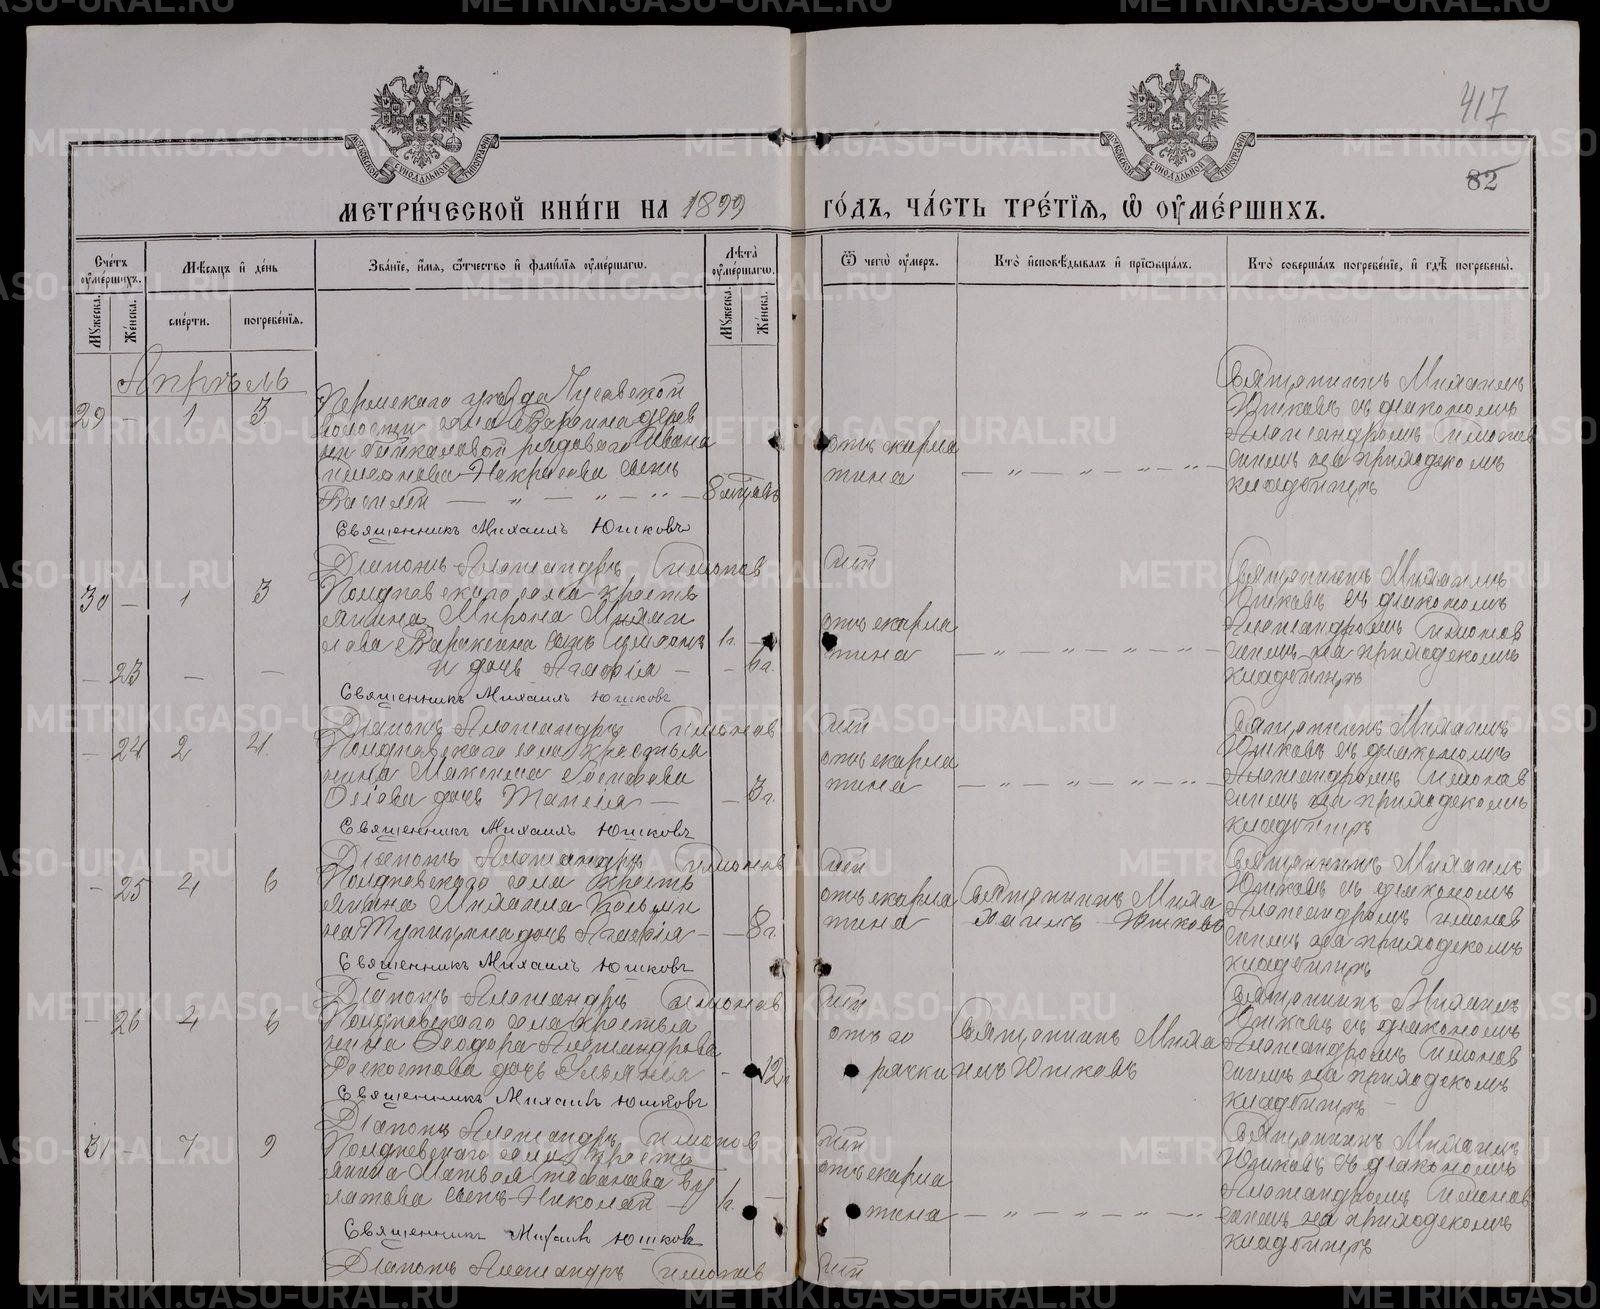 417
82
МЕТРИ́ЧЕСКОЙ КНИ́ГИ НА 1899 ГО́ДЪ, ЧА́СТЬ ТРЕ́ТІЯ, Ѡ ОУМЕ́РШИХЪ.
Сче́тъ оумéршихъ.
Мѣ́сяцъ и́ де́нь
Зва́нїе, и́мя, ѻ́тчество и́ фами́лїя оуме́ршагѡ.
Лѣ́та оуме́ршагѡ.
Ѿ чегѡ̀ оу́меръ.
Кто̀ и҆сповѣ́дывалъ и҆ прїѡбща́лъ.
Кто̀ соверша́лъ погребе́нїе, и҆ гдѣ̀ погребены̀.
Мꙋ́жеска.
Же́нска.
сме́рти.
погребе́нїя.
Мꙋ́жеска.
Же́нска.
Апрѣль
29 - 1 3
Пермскаго уѣзда
волости села дерев
ни рядоваго Ивана
Некрасова сынъ
Василій — " — " — " — 8 мѣсяц.
отъ скарла
тина
— " — " — " —
Священникъ Михаилъ
Юшковъ съ діакономъ
Александромъ Симонов
скимъ на приходскомъ
кладбищѣ
Священникъ Михаилъ Юшковъ
Діаконъ Александръ Симонов
скій
30 - 1 3
Полдневскаго села кресть
янина Мирона Михаи
лова Вараксина сынъ Симеонъ 1 г. -
- 23 - -
и дочь Агафія - - 6 г.
отъ скарла
тина
— " — " — " —
Священникъ Михаилъ
Юшковъ съ діакономъ
Александромъ Симонов
скимъ на приходскомъ
кладбищѣ
Священникъ Михаилъ Юшковъ
Діаконъ Александръ Симонов
скій
- 24 2 4
Полдневскаго села крестья
нина Максима
дочь - 3 г.
отъ скарла
тина
— " — " — " —
Священникъ Михаилъ
Юшковъ съ діакономъ
Александромъ Симонов
скимъ на приходскомъ
кладбищѣ
Священникъ Михаилъ Юшковъ
Діаконъ Александръ Симонов
скій
- 25 4 6
Полдневскаго села кресть
янина Михаила Козьми
на Тупицина дочь Агафія - - 8 г.
отъ скарла
тина
Священникъ Миха
илъ Юшковъ
Священникъ Михаилъ
Юшковъ съ діакономъ
Александромъ Симонов
скимъ на приходскомъ
кладбищѣ
Священникъ Михаилъ Юшковъ
Діаконъ Александръ Симонов
скій
- 26 4 6
Полдневскаго села крестья
нина Ѳеодора Александрова
дочь - 12 г.
отъ го
рячки
Священникъ Миха
илъ Юшковъ
Священникъ Михаилъ
Юшковъ съ діакономъ
Александромъ Симонов
скимъ на приходскомъ
кладбищѣ
Священникъ Михаилъ Юшковъ
Діаконъ Александръ Симонов
скій
31 - 7 9
Полдневскаго села кресть
янина Матвея Стефанова Бу
латова сынъ Николай - 1 г. -
отъ скарла
тина
— " — " — " —
Священникъ Михаилъ
Юшковъ съ діакономъ
Александромъ Симонов
скимъ на приходскомъ
кладбищѣ
Священникъ Михаилъ Юшковъ
Діаконъ Александръ Симонов
скій
METRIKI.GASO-URAL.RU